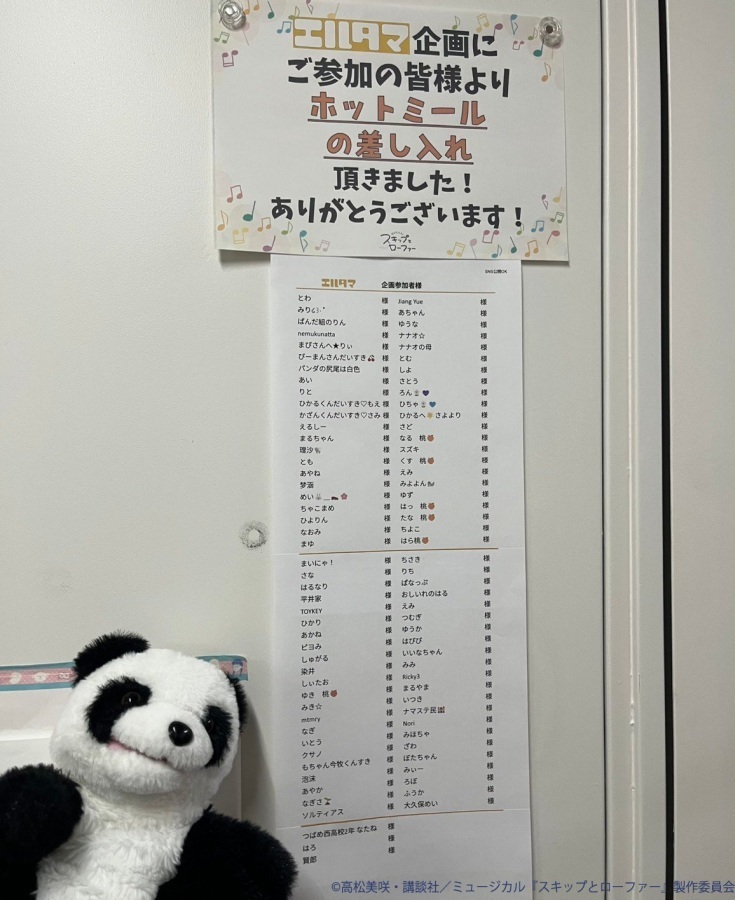 エルタマ企画に
ご参加の皆様より
ホットミール
の差し入れ
頂きました！
ありがとうございます！
スキップと
ローファー
SNS公開OK
エルタマ 企画参加者様
とわ 様 Jiang Yue 様
みり໒꒱· ゚ 様 あちゃん 様
ぱんだ組のりん 様 ゆうな 様
nemukunatta 様 ナナオ☆ 様
まぴさんへ★りぃ 様 ナナオの母 様
ぴーまんさんだいすき🍒 様 とむ 様
パンダの尻尾は白色 様 しよ 様
あい 様 さとう 様
りと 様 ろん 様
ひかるくんだいすき♡もえ 様 ひちゃ 様
かざんくんだいすき♡さみ 様 ひかるへ☀さよより 様
えるしー 様 さど 様
まるちゃん 様 なる 桃🍑 様
理沙🐈 様 スズキ 様
とも 様 くす 桃🍑 様
あやね 様 えみ 様
梦涵 様 みよよん 様
めい 様 ゆず 様
ちゃこまめ 様 はっ 桃🍑 様
ひよりん 様 たな 桃🍑 様
なおみ 様 ちよこ 様
まゆ 様 はら桃🍑 様
まいにゃ！ 様 ちさき 様
さな 様 りち 様
はるなり 様 ぱなっぷ 様
平井家 様 おしいれのはる 様
TOYKEY 様 えみ 様
ひかり 様 つむぎ 様
あかね 様 ゆうか 様
ピヨみ 様 はぴぴ 様
しゅがる 様 いいなちゃん 様
染井 様 みみ 様
しぃたお 様 Ricky3 様
ゆき 桃🍑 様 まるやま 様
みき☆ 様 いつき 様
mtmry 様 ナマステ民 様
なぎ 様 Nori 様
いとう 様 みほちゃ 様
クサノ 様 ざわ 様
もちゃん今牧くんすき 様 ぽたちゃん 様
泡沫 様 みぃー 様
あやか 様 ろぽ 様
なぎさ 様 ふうか 様
ソルティアス 様 大久保めい 様
つばめ西高校2年 なたね 様
はろ 様
賢郎 様
©高松美咲・講談社／ミュージカル『スキップとローファー』製作委員会